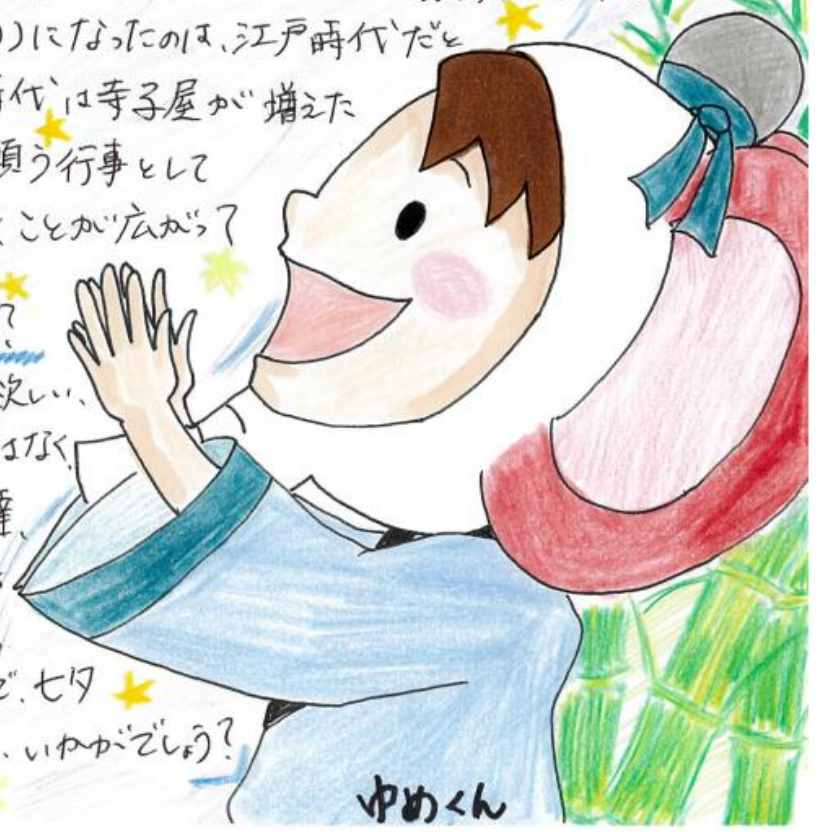 )になったのは、江戸時代だと
時代は寺子屋が増えた
願う行事として
くことが広がって
?
欲しい、
はなく、
達、
で、七夕
、いかがでしょう?
ゆめくん